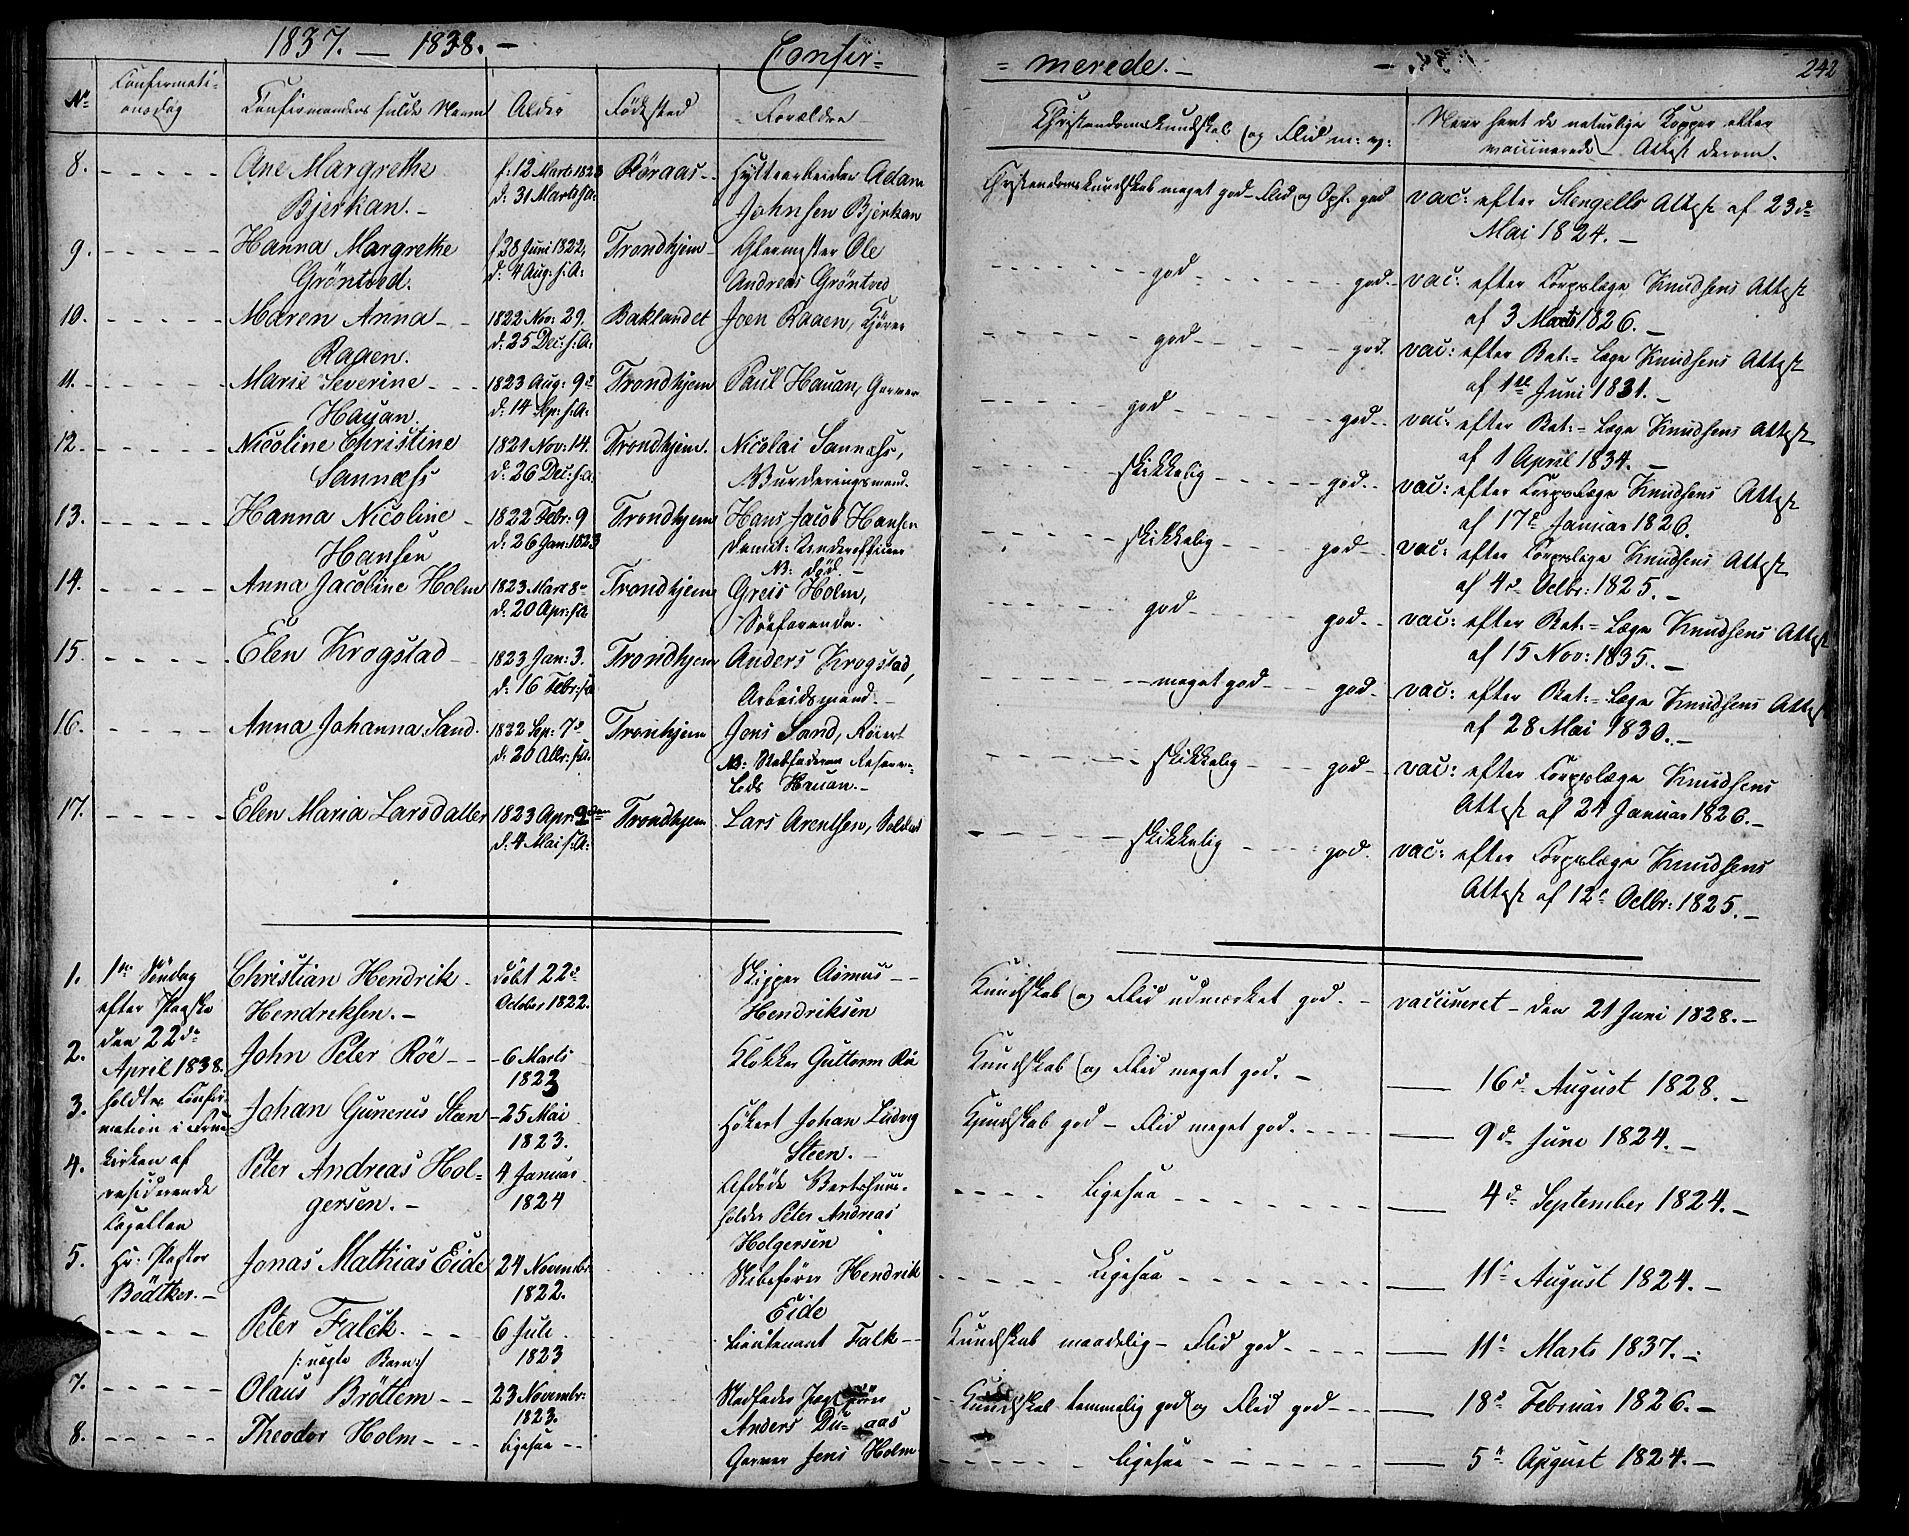 1837. — 1838. —
Confir=
= merede. —
242
No
Confirmati-
onsdag
Confirmandens fulde Navn
Alder
Fødested
Forældre
Christendomskundskab og Flid m: v:
Naar havt de naturlige Kopper eller
vaccinerede — Attest derom.
8. Ane Margrethe f: 12 Marts 1823 Røraas - Hyttearbeider Adam
Bjerkan. — d: 31 Marts s: A: Johnsen Bjerkan
Christendomskundskab meget god - Flid og Opf. god vac: efter Stengells Attest af 23d
Mai 1824. —
9. Hanna Margrethe f 28 Juni 1822, Trondhjem - Glarmester Ole
Gröntved. d: 4 Aug: s: A: Andreas Gröntved
god - god - vac: efter Corpslæge Knudsens Attest
af 3 Marts 1826. —
10. Maren Anna - 1822 Nov: 29, Baklandet Joen Raaen, Kjører
Raaen. d: 25 Dec: s: A:
god - god. vac: efter Bat: = Læge Knudsens Attest
af 1ste Juni 1831. —
11. Marie Severine - 1823 Aug: 9d Trondhjem Paul Hauan, Garver
Hauan. d: 14 Sep: s: A:
god - god. vac: efter Bat: = Læge Knudsens Attest
af 1 April 1834. —
12. Nicoline Christine 1821 Nov: 14. Trondhjem. Nicolai Sannæss,
Sannæss d: 26 Dec: s: A. Vurderingsmand.
skikkelig - god - vac: efter Corpslæge Knudsens Attest
af 17d Januar 1826.
13. Hanna Nicoline - 1822 Febr: 9 Trondhjem Hans Jacob Hansen
Hansen d: 26 Jan: 1823 Underofficier
N: død
skikkelig - god - vac: efter Corpslæge Knudsens Attest
af 4d Octbr: 1825. —
14. Anna Jacoline Holm 1823 Mart 8 Trondhjem Greis Holm,
d: 20 Apr: s: A Søefarende.
god - god - vac: efter Bat: = Læge Knudsens Attest
af 15 Nov: 1835. —
15. Elen Krogstad 1823 Jan: 3. Trondhjem Anders Krogstad,
d: 16 Febr: s: A Arbeidsmand. —
meget god - god - vac: efter Bat: = Læge Knudsens Attest
af 28 Mai 1830. —
16. Anna Johanna Sand. 1822 Sep: 7d Tronhjem Jens Sand,
d: 20 s: A. N: Stedfaderen
Lods Hauan. —
skikkelig - god - vac: efter Corpslæge Knudsens
Attest af 24 Januar 1826. —
17. Elen Maria Larsdatter 1823 Apr: 9 Trondhjem Lars Arentsen, Soldat
d: 4 Mai s: A:
skikkelig - god. vac: efter Corpslæge Knudsens
Attest af 12t Octbr: 1825. —
1ste Søndag
efter Paaske
den 22de
April 1838.
holdtes Confir-
mation i Frue-
kirken af
residerende
Capellan
Hr: Pastor
Bödtker. —
1. Christian Hendrik - døbt 22d Skipper Asmus -
Hendriksen. — October 1822. Hendriksen
Kundskab og Flid udmærket god. - vaccineret - den 21 Juni 1828. —
2. John Peter Röe - 6 Marts Klokker Guttorm Röe
1823
Kundskab og Flid meget god. — 16d August 1828. —
3. Johan Gunerus Steen - 25 Mai Høkert Johan Ludvig
1823. Steen. —
Kundskab god - Flid meget god. 9d June 1824. —
4. Peter Andreas Hol= 4 Januar Afdøde Vertshuus-
gersen. — 1824 holder Peter Andreas
Holgersen
Ligesaa 4d September 1824. —
5. Jonas Mathias Eide 24 Novembr: Skibsfører Hendrik
1822. Eide
Ligesaa 11t August 1824. —
Peter Falck. 6 Juli Lieutenant Falk -
/: uægte Barn :/ 1823
Kundskab maadelig - Flid god 11t Marts 1837. —
7. Olaus Bröttem 23 Novembr: Stedfader
1823. Anders
Kundskab temmelig god og Flid god 18d Februar 1826. —
8. Theodor Holm Ligesaa Garver Jens Holm
Ligesaa 5t August 1824. —